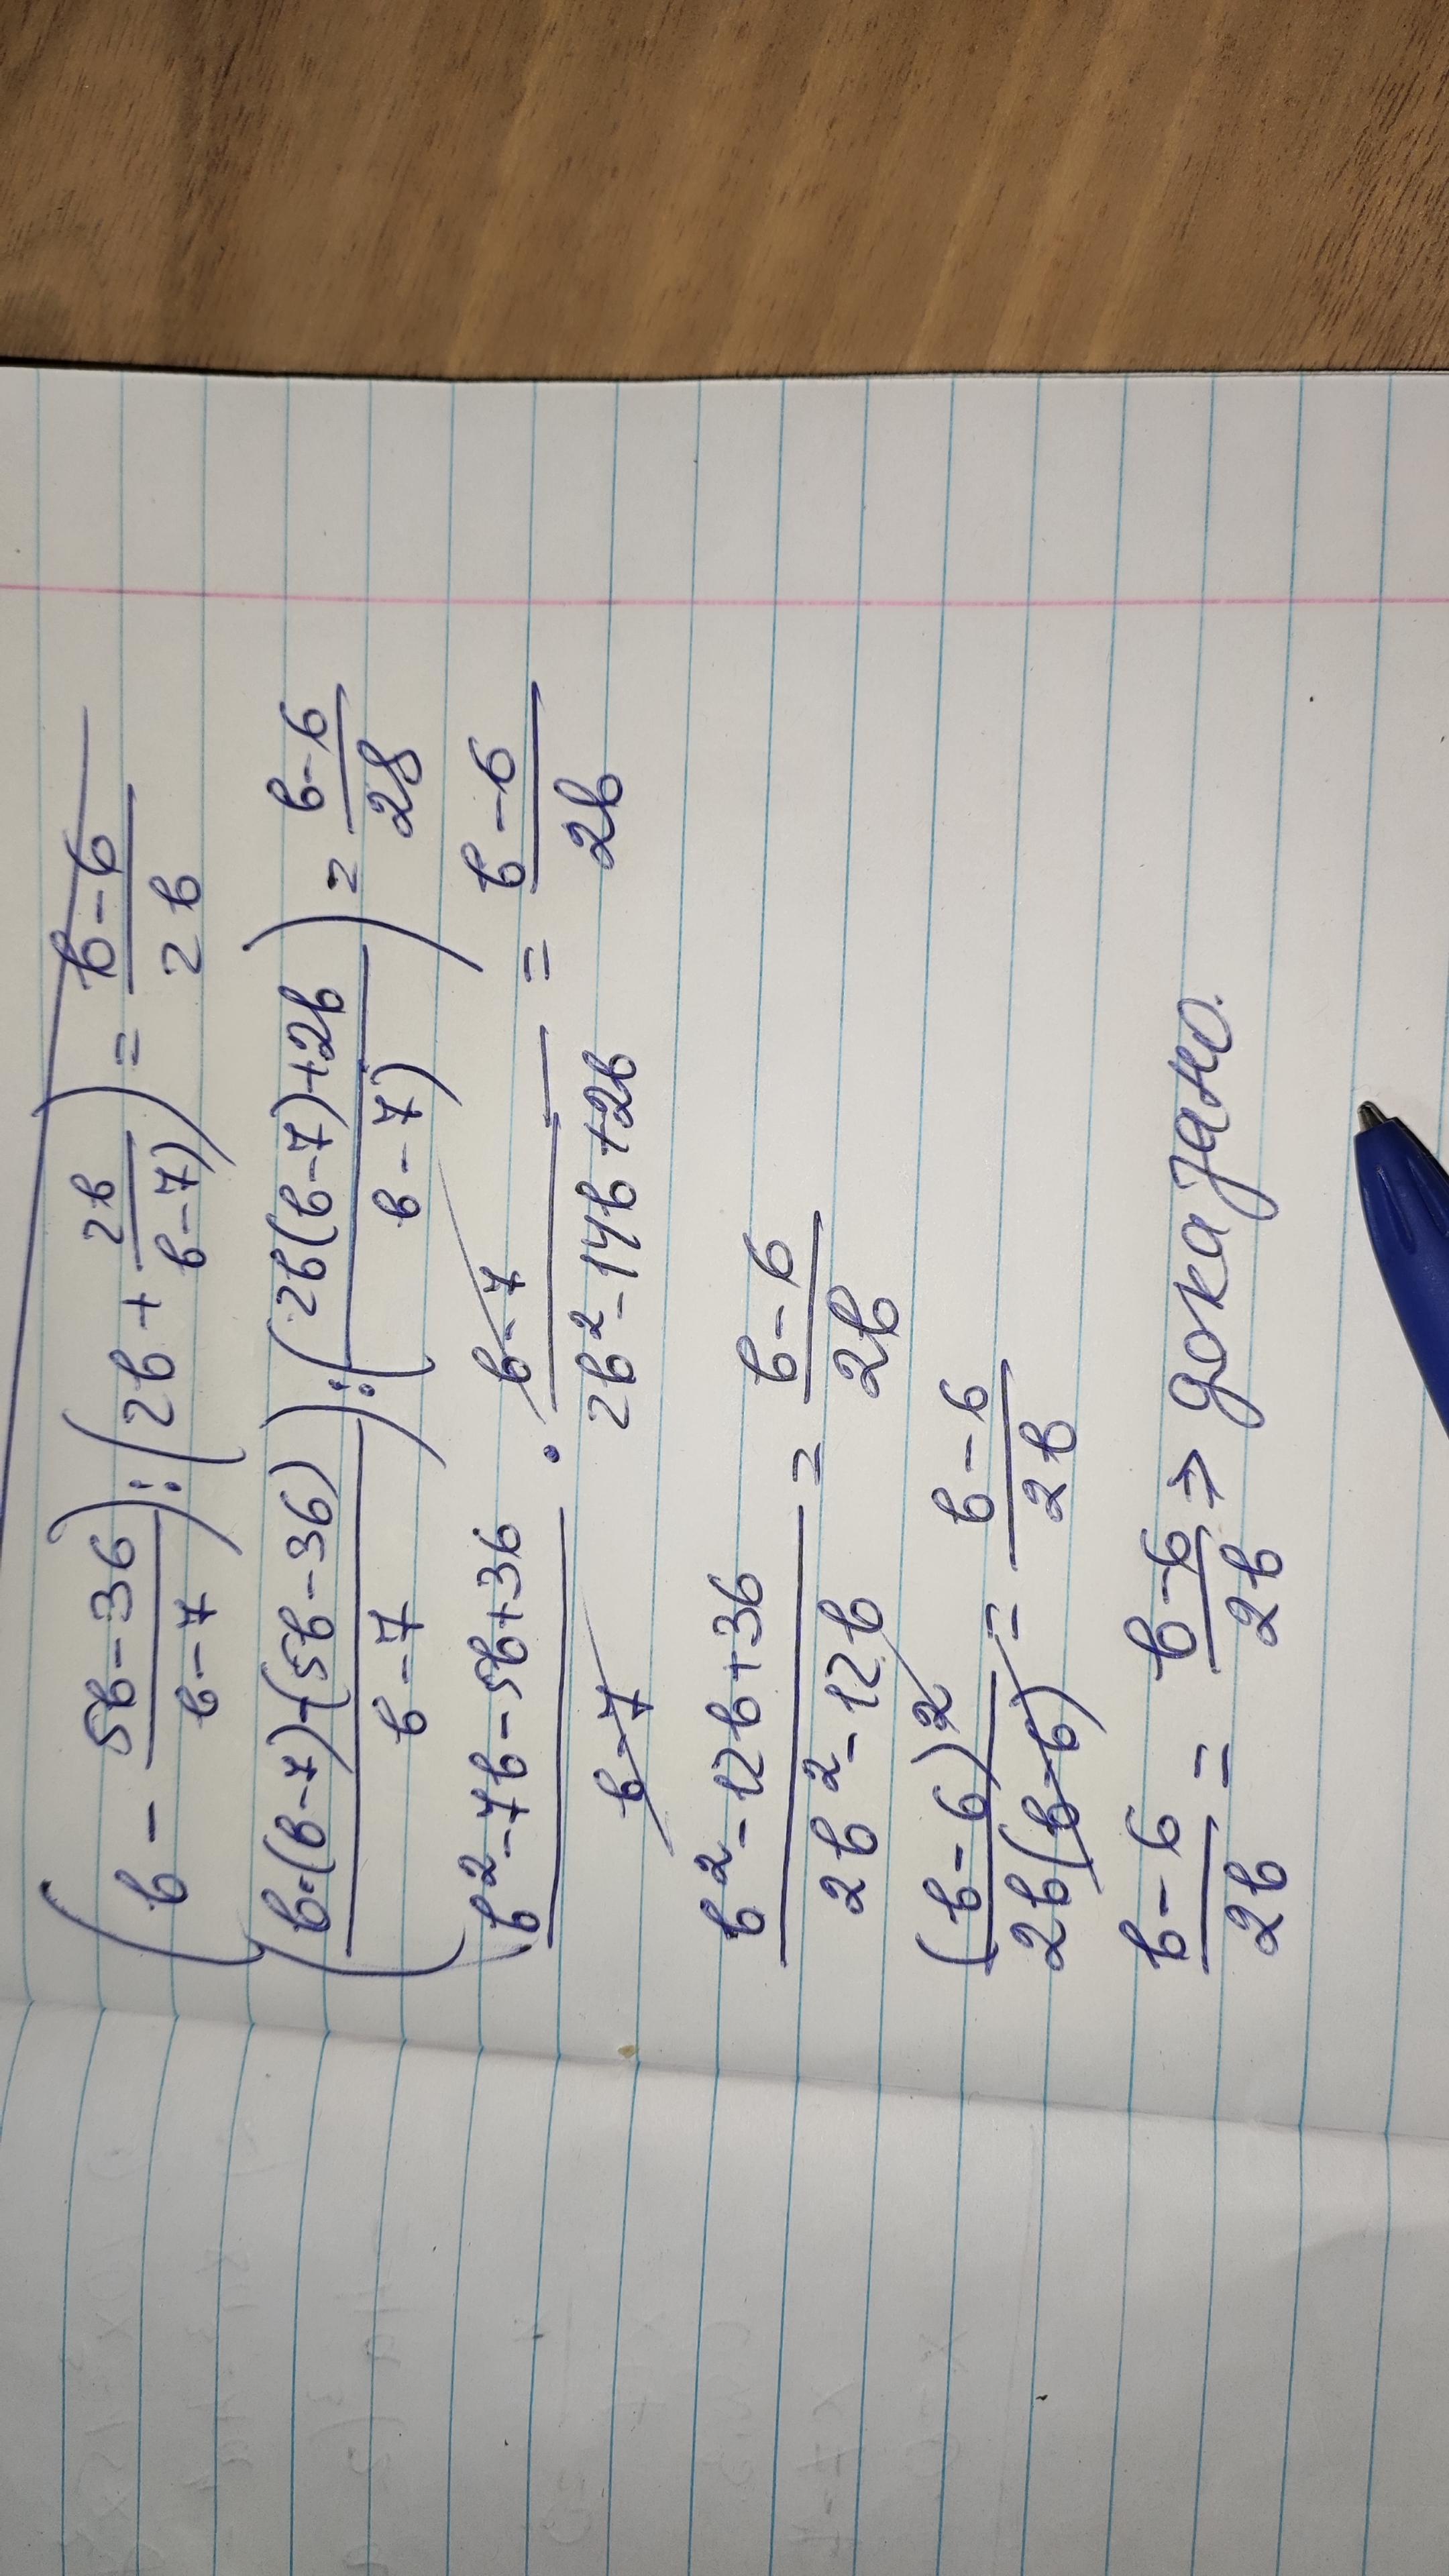 (b - (5b-36)/(b-7)) : (2b + 2b/(b-7)) = (b-6)/(2b)
((b·(b-7)-(5b-36))/(b-7)) : ((2b(b-7)+2b)/(b-7)) = (b-6)/(28)
(b²-7b-5b+36)/(b-7) · (b-7)/(2b²-14b+2b) = (b-6)/(2b)
(b²-12b+36)/(2b²-12b) = (b-6)/(2b)
(b-6)²/(2b(b-6)) = (b-6)/(2b)
(b-6)/(2b) = (b-6)/(2b) => доказано.